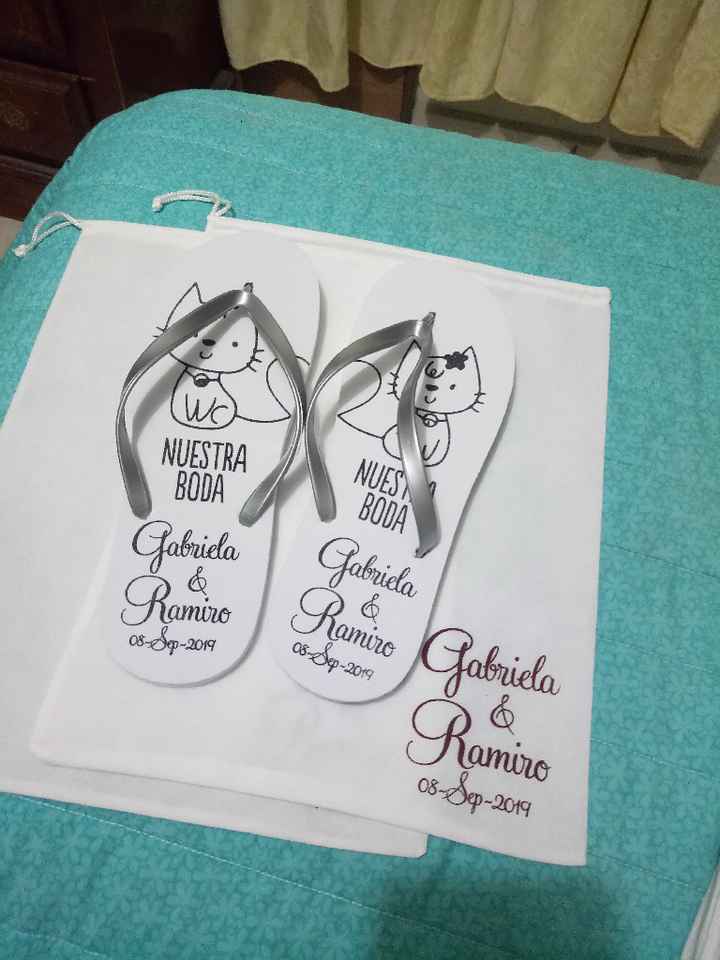 WC
NUESTRA
BODA
Gabriela
&
Ramiro
08-Sep-2019
NUESTRA
BODA
Gabriela
&
Ramiro
08-Sep-2019
Gabriela
&
Ramiro
08-Sep-2019